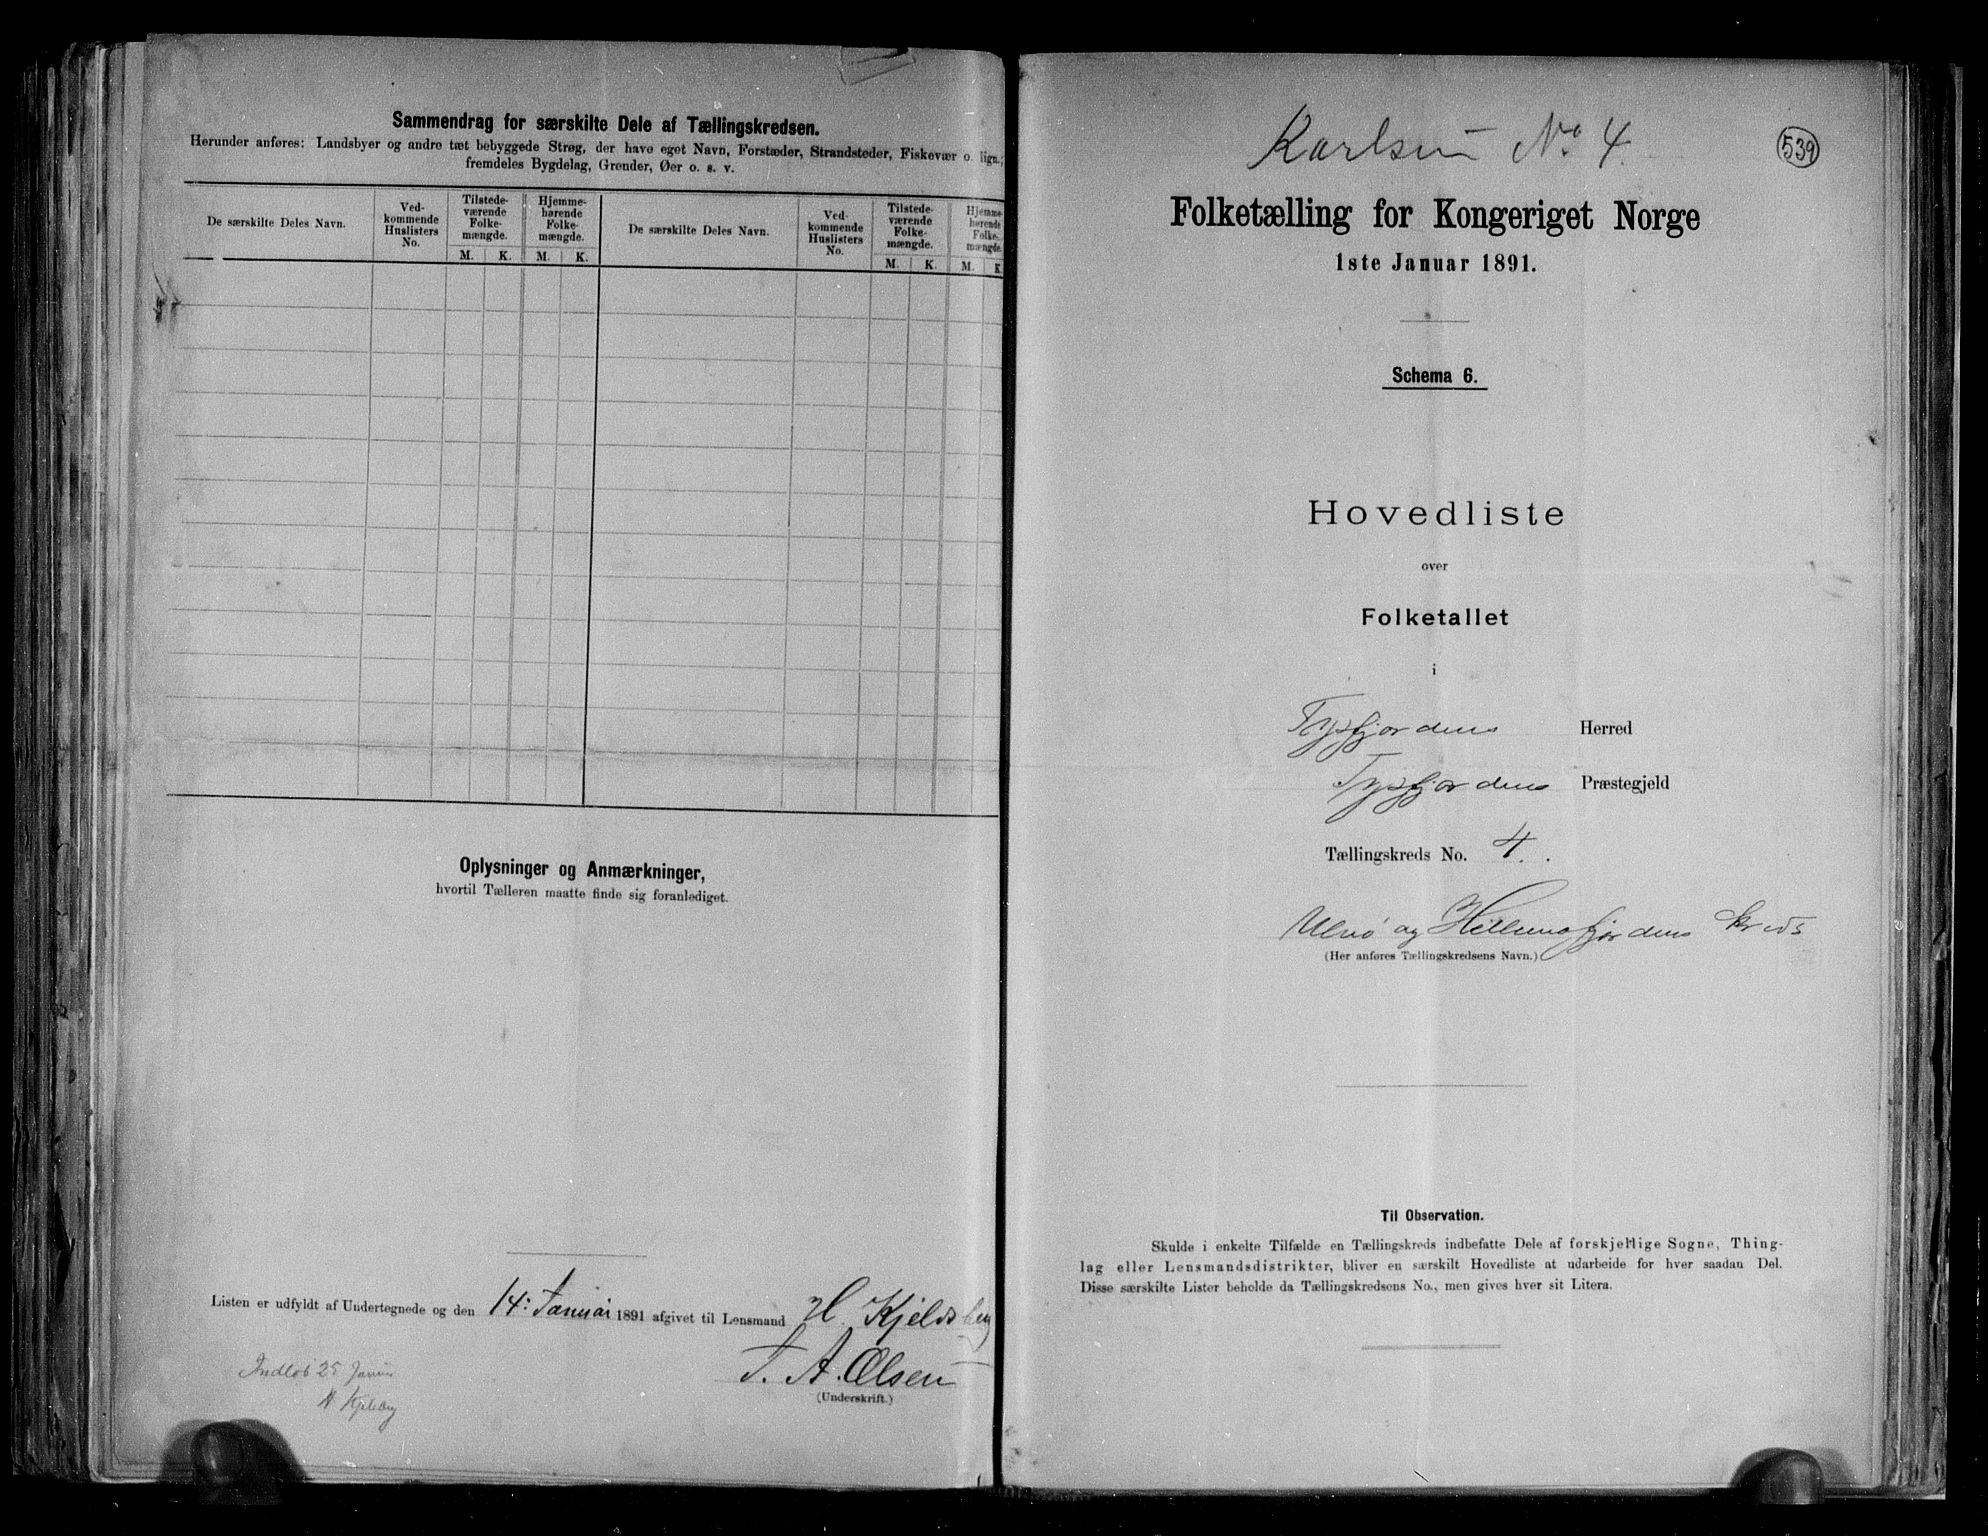 Sammendrag for særskilte Dele af Tællingskredsen.
Herunder anføres: Landsbyer og andre tæt bebyggede Strøg, der have eget Navn, Forstæder, Strandsteder, Fiskevær o. lign.;
fremdeles Bygdelag, Grender, Øer o. s. v.
De særskilte Deles Navn.
Ved-
kommende
Huslisters
No.
Tilstede-
værende
Folke-
mængde.
Hjemme-
hørende
Folke-
mængde.
M. K. M. K.
De særskilte Deles Navn.
Ved-
kommende
Huslisters
No.
Tilstede-
værende
Folke-
mængde.
Hjemme-
hørende
Folke-
mængde.
M. K. M. K.
Oplysninger og Anmærkninger,
hvortil Tælleren maatte finde sig foranlediget.
Listen er udfyldt af Undertegnede og den 14: Januar 1891 afgivet til Lensmand H. Kjeldsberg
T. A. Olsen
(Underskrift.)
Indløb 25 Januar
H Kjeldberg
Karlsen No. 4.
539
Folketælling for Kongeriget Norge
1ste Januar 1891.
Schema 6.
Hovedliste
over
Folketallet
i
Tysfjordens Herred
Tysfjordens Præstegjeld
Tællingskreds No. 4.
og Hellemofjordens Kreds
(Her anføres Tællingskredsens Navn.)
Til Observation.
Skulde i enkelte Tilfælde en Tællingskreds indbefatte Dele af forskjellige Sogne, Thing-
lag eller Lensmandsdistrikter, bliver en særskilt Hovedliste at udarbeide for hver saadan Del.
Disse særskilte Lister beholde da Tællingskredsens No., men gives hver sit Litera.